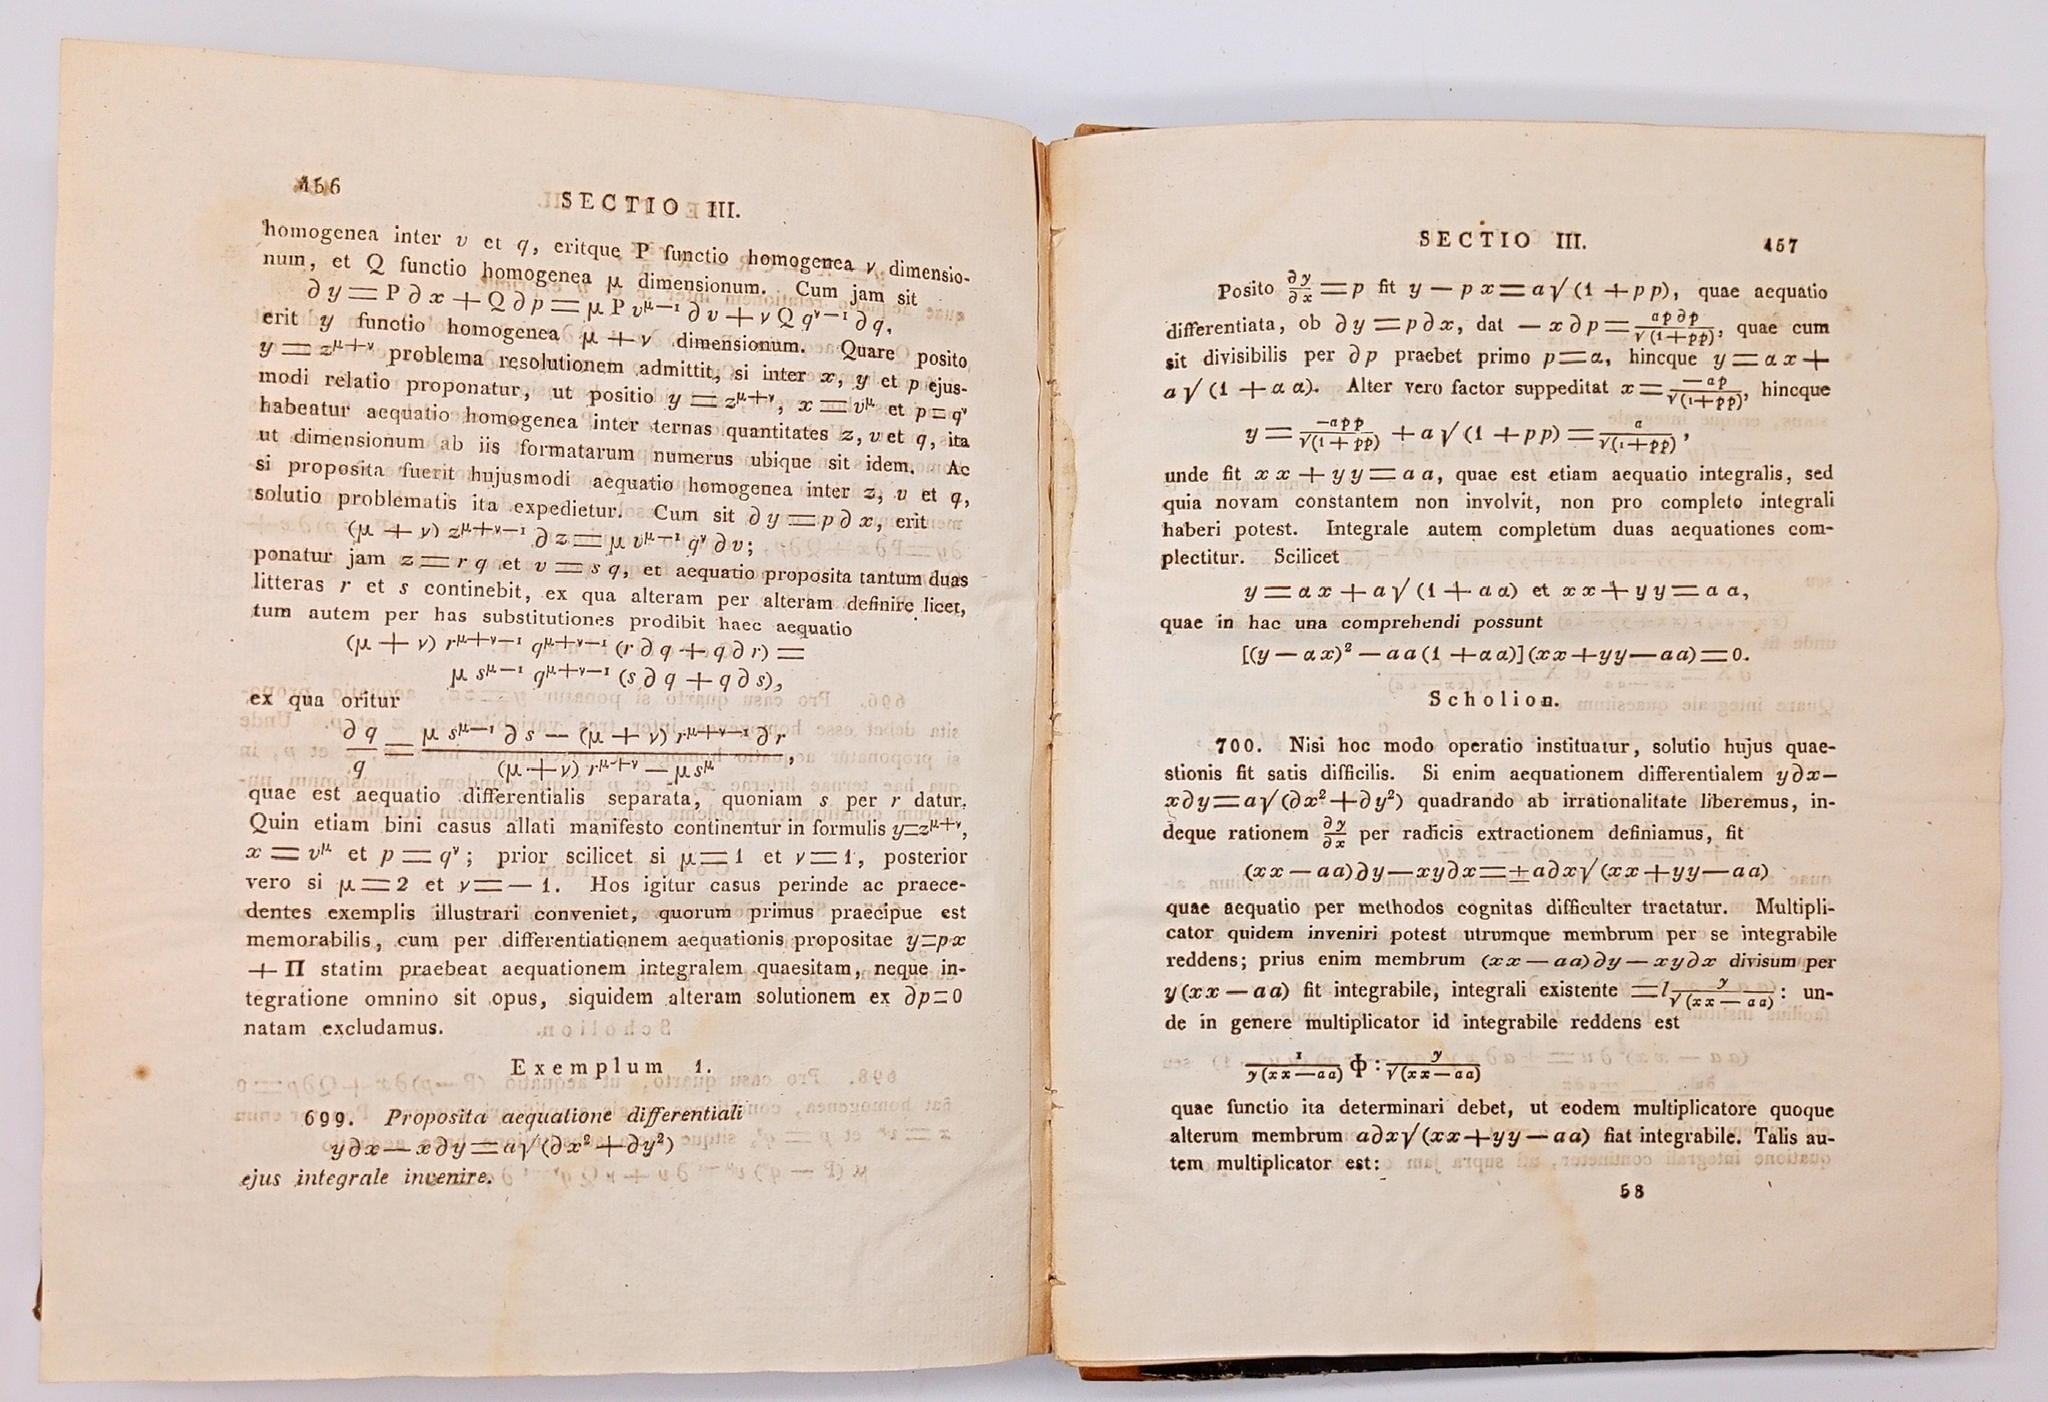 456
SECTIO III.
homogenea inter v et q, eritque P functio homogenea ν dimensio-
num, et Q functio homogenea μ dimensionum. Cum jam sit
∂y = P∂x + Q∂p = μ P v^{μ−1} ∂v + ν Q q^{ν−1} ∂q,
erit y functio homogenea μ + ν dimensionum. Quare posito
y = z^{μ+ν} problema resolutionem admittit, si inter x, y et p ejus-
modi relatio proponatur, ut positio y = z^{μ+ν}, x = v^μ et p = q^ν
habeatur aequatio homogenea inter ternas quantitates z, v et q, ita
ut dimensionum ab iis formatarum numerus ubique sit idem. Ac
si proposita fuerit hujusmodi aequatio homogenea inter z, v et q,
solutio problematis ita expedietur. Cum sit ∂y = p∂x, erit
(μ + ν) z^{μ+ν−1} ∂z = μ v^{μ−1} q^ν ∂v;
ponatur jam z = rq et v = sq, et aequatio proposita tantum duas
litteras r et s continebit, ex qua alteram per alteram definire licet,
tum autem per has substitutiones prodibit haec aequatio
(μ + ν) r^{μ+ν−1} q^{μ+ν−1} (r∂q + q∂r) =
μ s^{μ−1} q^{μ+ν−1} (s∂q + q∂s),
ex qua oritur
∂q/q = (μ s^{μ−1} ∂s − (μ + ν) r^{μ+ν−1} ∂r)/((μ + ν) r^{μ+ν} − μ s^μ),
quae est aequatio differentialis separata, quoniam s per r datur.
Quin etiam bini casus allati manifesto continentur in formulis y=z^{μ+ν},
x = v^μ et p = q^ν; prior scilicet si μ = 1 et ν = 1, posterior
vero si μ = 2 et ν = − 1. Hos igitur casus perinde ac praece-
dentes exemplis illustrari conveniet, quorum primus praecipue est
memorabilis, cum per differentiationem aequationis propositae y=px
+ Π statim praebeat aequationem integralem quaesitam, neque in-
tegratione omnino sit opus, siquidem alteram solutionem ex ∂p=0
natam excludamus.
Exemplum 1.
699. Proposita aequatione differentiali
y∂x − x∂y = a√(∂x² + ∂y²)
ejus integrale invenire.
SECTIO III. 457
Posito ∂y/∂x = p fit y − px = a√(1 + pp), quae aequatio
differentiata, ob ∂y = p∂x, dat − x∂p = ap∂p/√(1+pp), quae cum
sit divisibilis per ∂p praebet primo p = α, hincque y = αx +
a√(1 + αα). Alter vero factor suppeditat x = −ap/√(1+pp), hincque
y = −app/√(1+pp) + a√(1 + pp) = a/√(1+pp),
unde fit xx + yy = aa, quae est etiam aequatio integralis, sed
quia novam constantem non involvit, non pro completo integrali
haberi potest. Integrale autem completum duas aequationes com-
plectitur. Scilicet
y = αx + a√(1 + αα) et xx + yy = aa,
quae in hac una comprehendi possunt
[(y − αx)² − aa(1 + αα)](xx + yy − aa) = 0.
Scholion.
700. Nisi hoc modo operatio instituatur, solutio hujus quae-
stionis fit satis difficilis. Si enim aequationem differentialem y∂x−
x∂y = a√(∂x² + ∂y²) quadrando ab irrationalitate liberemus, in-
deque rationem ∂y/∂x per radicis extractionem definiamus, fit
(xx − aa)∂y − xy∂x = ± a∂x√(xx + yy − aa)
quae aequatio per methodos cognitas difficulter tractatur. Multipli-
cator quidem inveniri potest utrumque membrum per se integrabile
reddens; prius enim membrum (xx − aa)∂y − xy∂x divisum per
y(xx − aa) fit integrabile, integrali existente = l y/√(xx − aa): un-
de in genere multiplicator id integrabile reddens est
1/y(xx − aa) Φ : y/√(xx − aa)
quae functio ita determinari debet, ut eodem multiplicatore quoque
alterum membrum a∂x√(xx + yy − aa) fiat integrabile. Talis au-
tem multiplicator est:
58